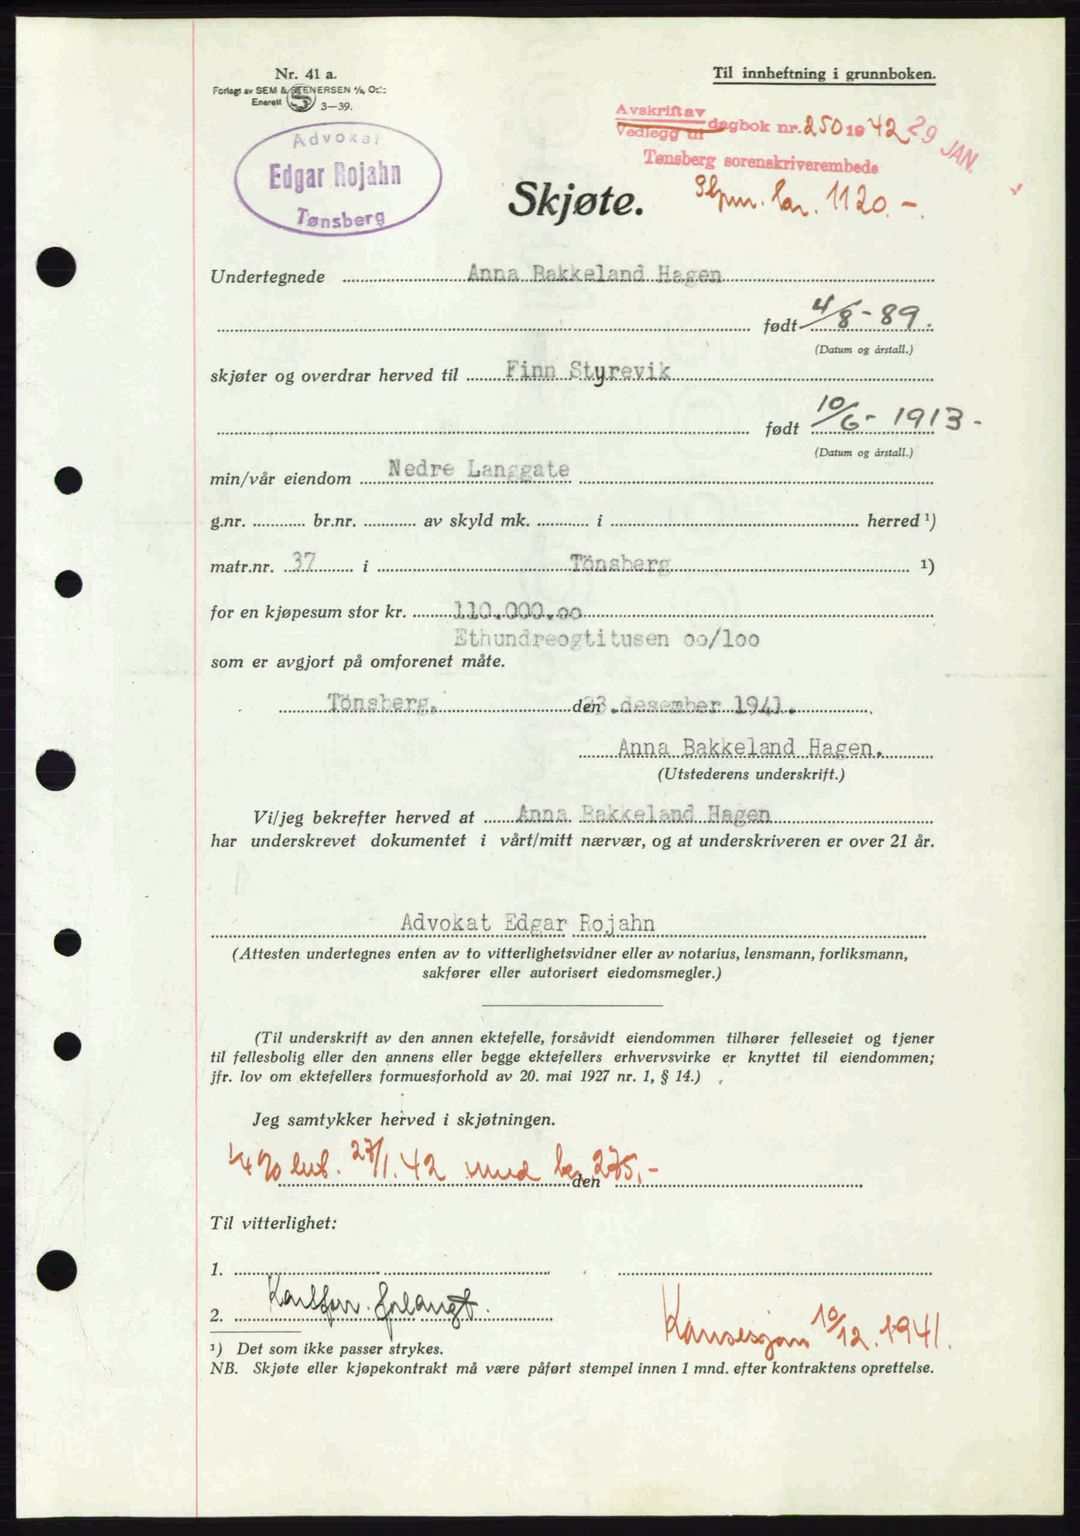 Nr. 41 a.
Forlagt av SEM & STENERSEN A/S, Oslo
Enerett 3—39.
Til innheftning i grunnboken.
Advokat
Edgar Rojahn
Tønsberg
Avskrift av
Vedlegg til dagbok nr. 250 1942 29 JAN.
Tønsberg sorenskriverembede
Skjøte.
1120.-.
Undertegnede Anna Bakkeland Hagen
født 4/8-89.
(Datum og årstall.)
skjøter og overdrar herved til Finn Styrevik
født 10/6-1913-
(Datum og årstall.)
min/vår eiendom Nedre Langgate
g.nr. br.nr. av skyld mk. i herred ¹)
matr.nr. 37 i Tönsberg ¹)
for en kjøpesum stor kr. 110.000.oo
Ethundreogtitusen oo/loo
som er avgjort på omforenet måte.
Tönsberg, den 23.desember 1941.
Anna Bakkeland Hagen.
(Utstederens underskrift.)
Vi/jeg bekrefter herved at Anna Bakkeland Hagen
har underskrevet dokumentet i vårt/mitt nærvær, og at underskriveren er over 21 år.
Advokat Edgar Rojahn
(Attesten undertegnes enten av to vitterlighetsvidner eller av notarius, lensmann, forliksmann,
sakfører eller autorisert eiedomsmegler.)
(Til underskrift av den annen ektefelle, forsåvidt eiendommen tilhører felleseiet og tjener
til fellesbolig eller den annens eller begge ektefellers erhvervsvirke er knyttet til eiendommen;
jfr. lov om ektefellers formuesforhold av 20. mai 1927 nr. 1, § 14.)
Jeg samtykker herved i skjøtningen.
27/1.42 med kr. 275,-
den
Til vitterlighet:
1.
2. forlangt.
Konsesjon 10/12.1941.
¹) Det som ikke passer strykes.
NB. Skjøte eller kjøpekontrakt må være påført stempel innen 1 mnd. efter kontraktens oprettelse.